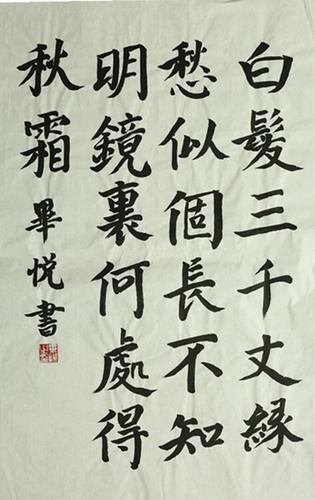 白髮三千丈緣
愁似個長不知
明鏡裏何處得
秋霜
畢悅書